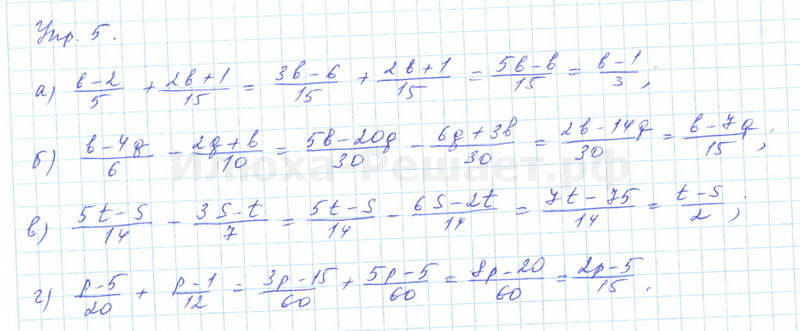 Упр. 5.
а) (в-2)/5 + (2в+1)/15 = (3в-6)/15 + (2в+1)/15 = (5в-в)/15 = (в-1)/3;
б) (в-4q)/6 - (2q+в)/10 = (5в-20q)/30 - (6q+3в)/30 = (2в-14q)/30 = (в-7q)/15;
Илюха-Решает.рф
в) (5t-S)/14 - (3S-t)/7 = (5t-S)/14 - (6S-2t)/14 = (7t-75)/14 = (t-S)/2;
г) (p-5)/20 + (p-1)/12 = (3p-15)/60 + (5p-5)/60 = (8p-20)/60 = (2p-5)/15.